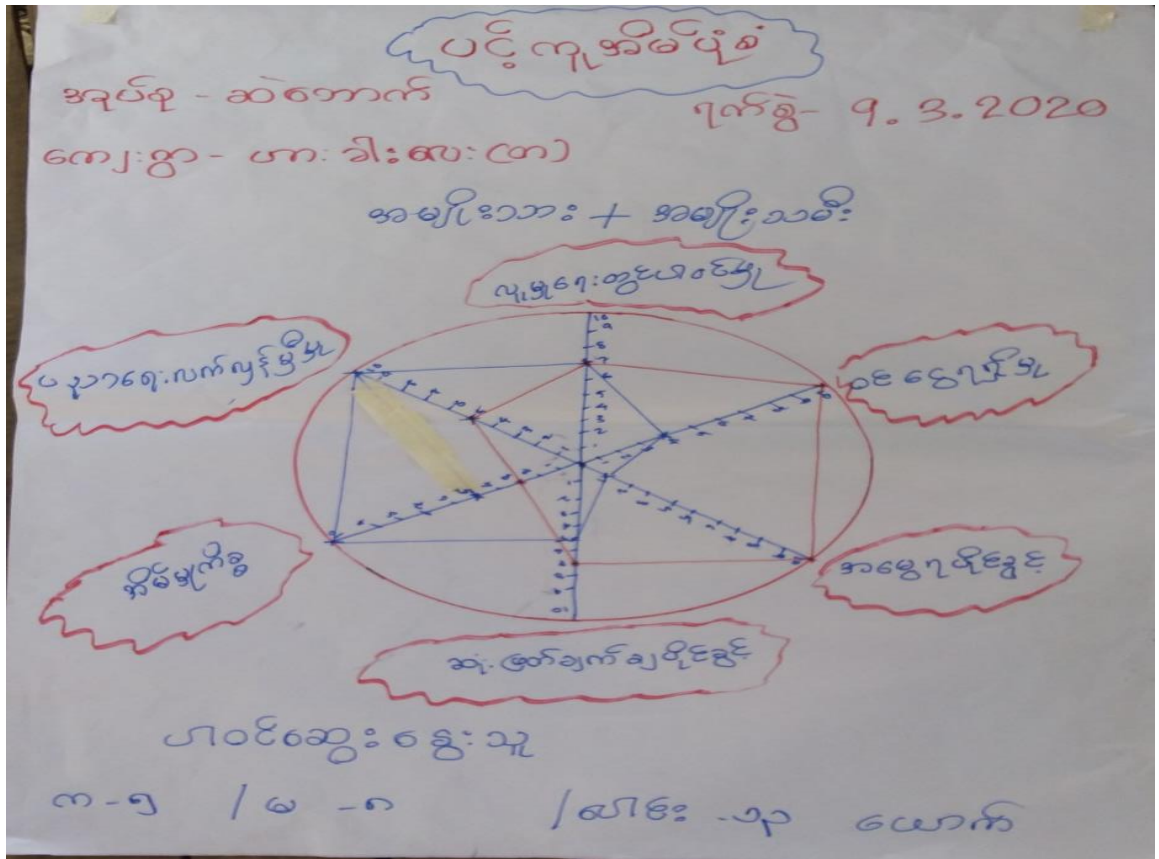 ပင့်ကူအိမ်ပုံစံ
အုပ်စု - ဆဲဘောက်
ရက်စွဲ- 9.3.2020
ကျေးရွာ - ဟားခါးလေး(တ)
အမျိုးသား + အမျိုးသမီး
လူမှုရေးတွင်ပါဝင်မှု
ပညာရေးလက်လှမ်းမှီမှု
ဝင်ငွေရရှိမှု
အိမ်မှုကိစ္စ
အမွေရပိုင်ခွင့်
ဆုံးဖြတ်ချက်ချပိုင်ခွင့်
ပါဝင်ဆွေးနွေးသူ
က - ၅ / မ - ၈ / ပေါင်း - ၁၃ ယောက်